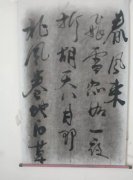 北風卷地白草
折胡天八月即
飛雪忽如一夜
春風来